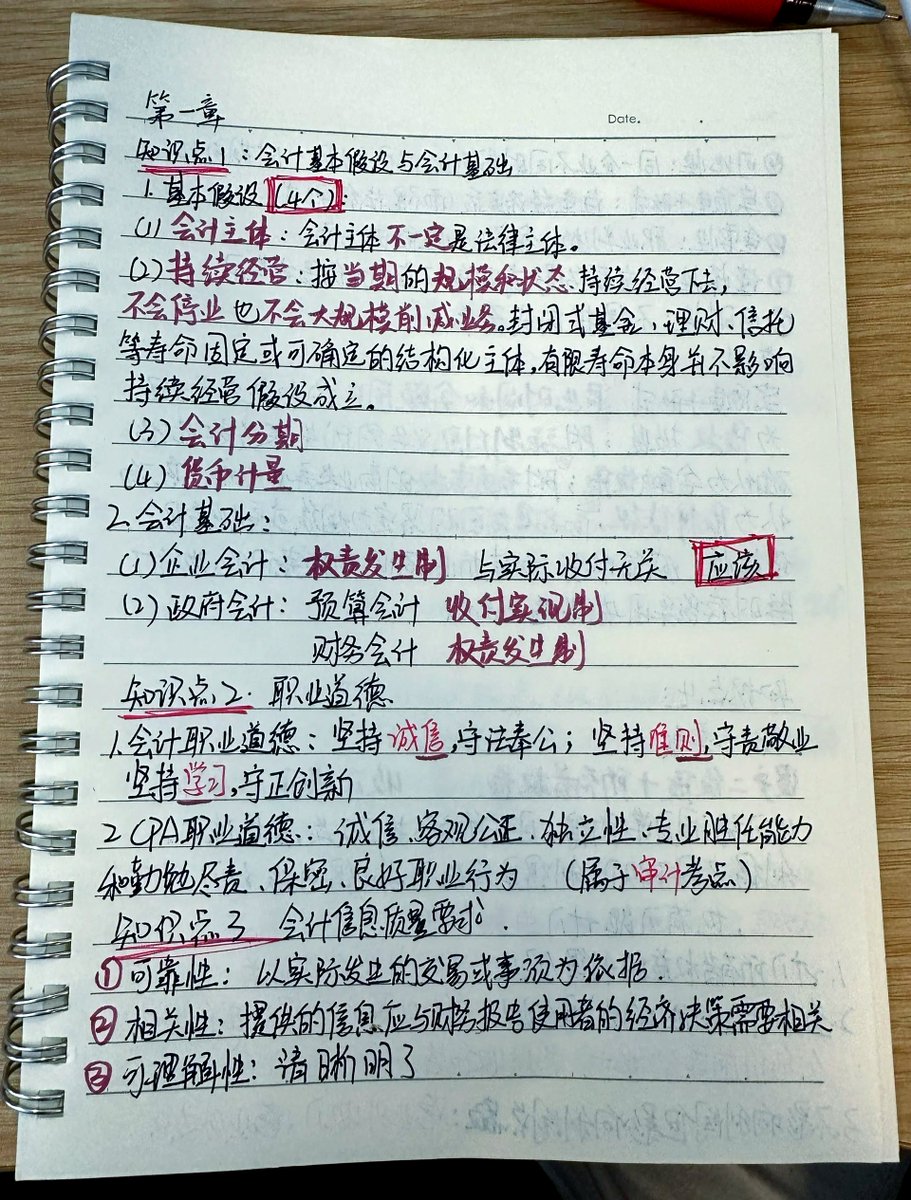 第一章
Date.
知识点1：会计基本假设与会计基础
1. 基本假设(4个)：
(1) 会计主体：会计主体不一定是法律主体。
(2) 持续经营：按当期的规模和状态持续经营下去，
不会停业也不会大规模削减业务。封闭式基金、理财、信托
等寿命固定或可确定的结构化主体，有限寿命本身并不影响
持续经营假设成立。
(3) 会计分期
(4) 货币计量
2. 会计基础：
(1) 企业会计：权责发生制 与实际收付无关 应该
(2) 政府会计：预算会计 收付实现制
财务会计 权责发生制
知识点2. 职业道德
1. 会计职业道德：坚持诚信，守法奉公；坚持准则，守责敬业
坚持学习，守正创新
2 CPA职业道德：诚信、客观公正、独立性、专业胜任能力
和勤勉尽责、保密、良好职业行为 （属于审计考点）
知识点3 会计信息质量要求.
① 可靠性：以实际发生的交易或事项为依据.
② 相关性：提供的信息应与财务报告使用者的经济决策需要相关
③ 可理解性：清晰明了